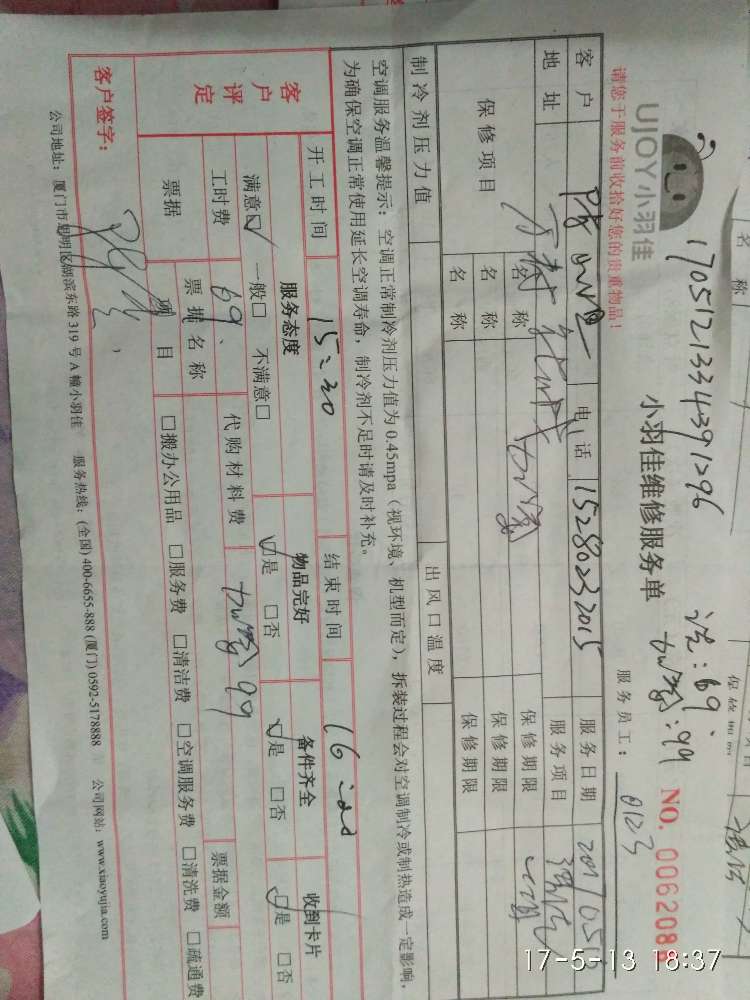 名称
1705121334391296
洗:69.
加氟:99
UJOY小羽佳
小羽佳维修服务单
NO. 006208
请您于服务前收拾好您的贵重物品!
服务员工: 0123
客户 电话 15280232015 服务日期
地址 服务项目
保修项目 名称 加氟 保修期限
名称 保修期限
名称 保修期限
制冷剂压力值 出风口温度
空调服务温馨提示:空调正常制冷剂压力值为0.45mpa(视环境、机型而定),拆装过程会对空调制冷或制热造成一定影响,
为确保空调正常使用延长空调寿命,制冷剂不足时请及时补充。
开工时间 15:20 结束时间
客户评定 服务态度 物品完好 备件齐全 收到卡片
满意☑ 一般□ 不满意□ ☑是 □否 ☑是 □否 ☑是 □否
工时费 69. 代购材料费 加氟99
票据 票据名称 票据金额
项目 □搬办公用品 □服务费 □清洁费 □空调服务费 □清洗费 □疏通费
客户签字:
公司地址:厦门市思明区湖滨东路319号A幢小羽佳 服务热线:(全国)400-6655-888(厦门)0592-5178888 公司网站:www.xiaoyujia.com
17-5-13 18:37